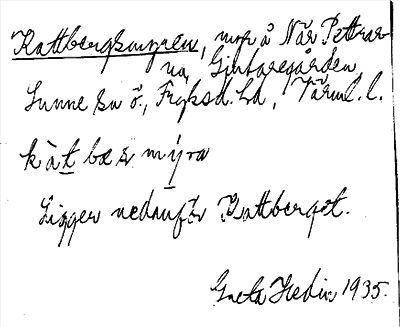 Kattbergsmyren, myr å När Pettrar
na, Gjutaregården,
Sunne sn ö., Fryksd. hd, Värml. l.
kàt bœs mýra
Ligger nedanför Kattberget.
Greta Hedin 1935.